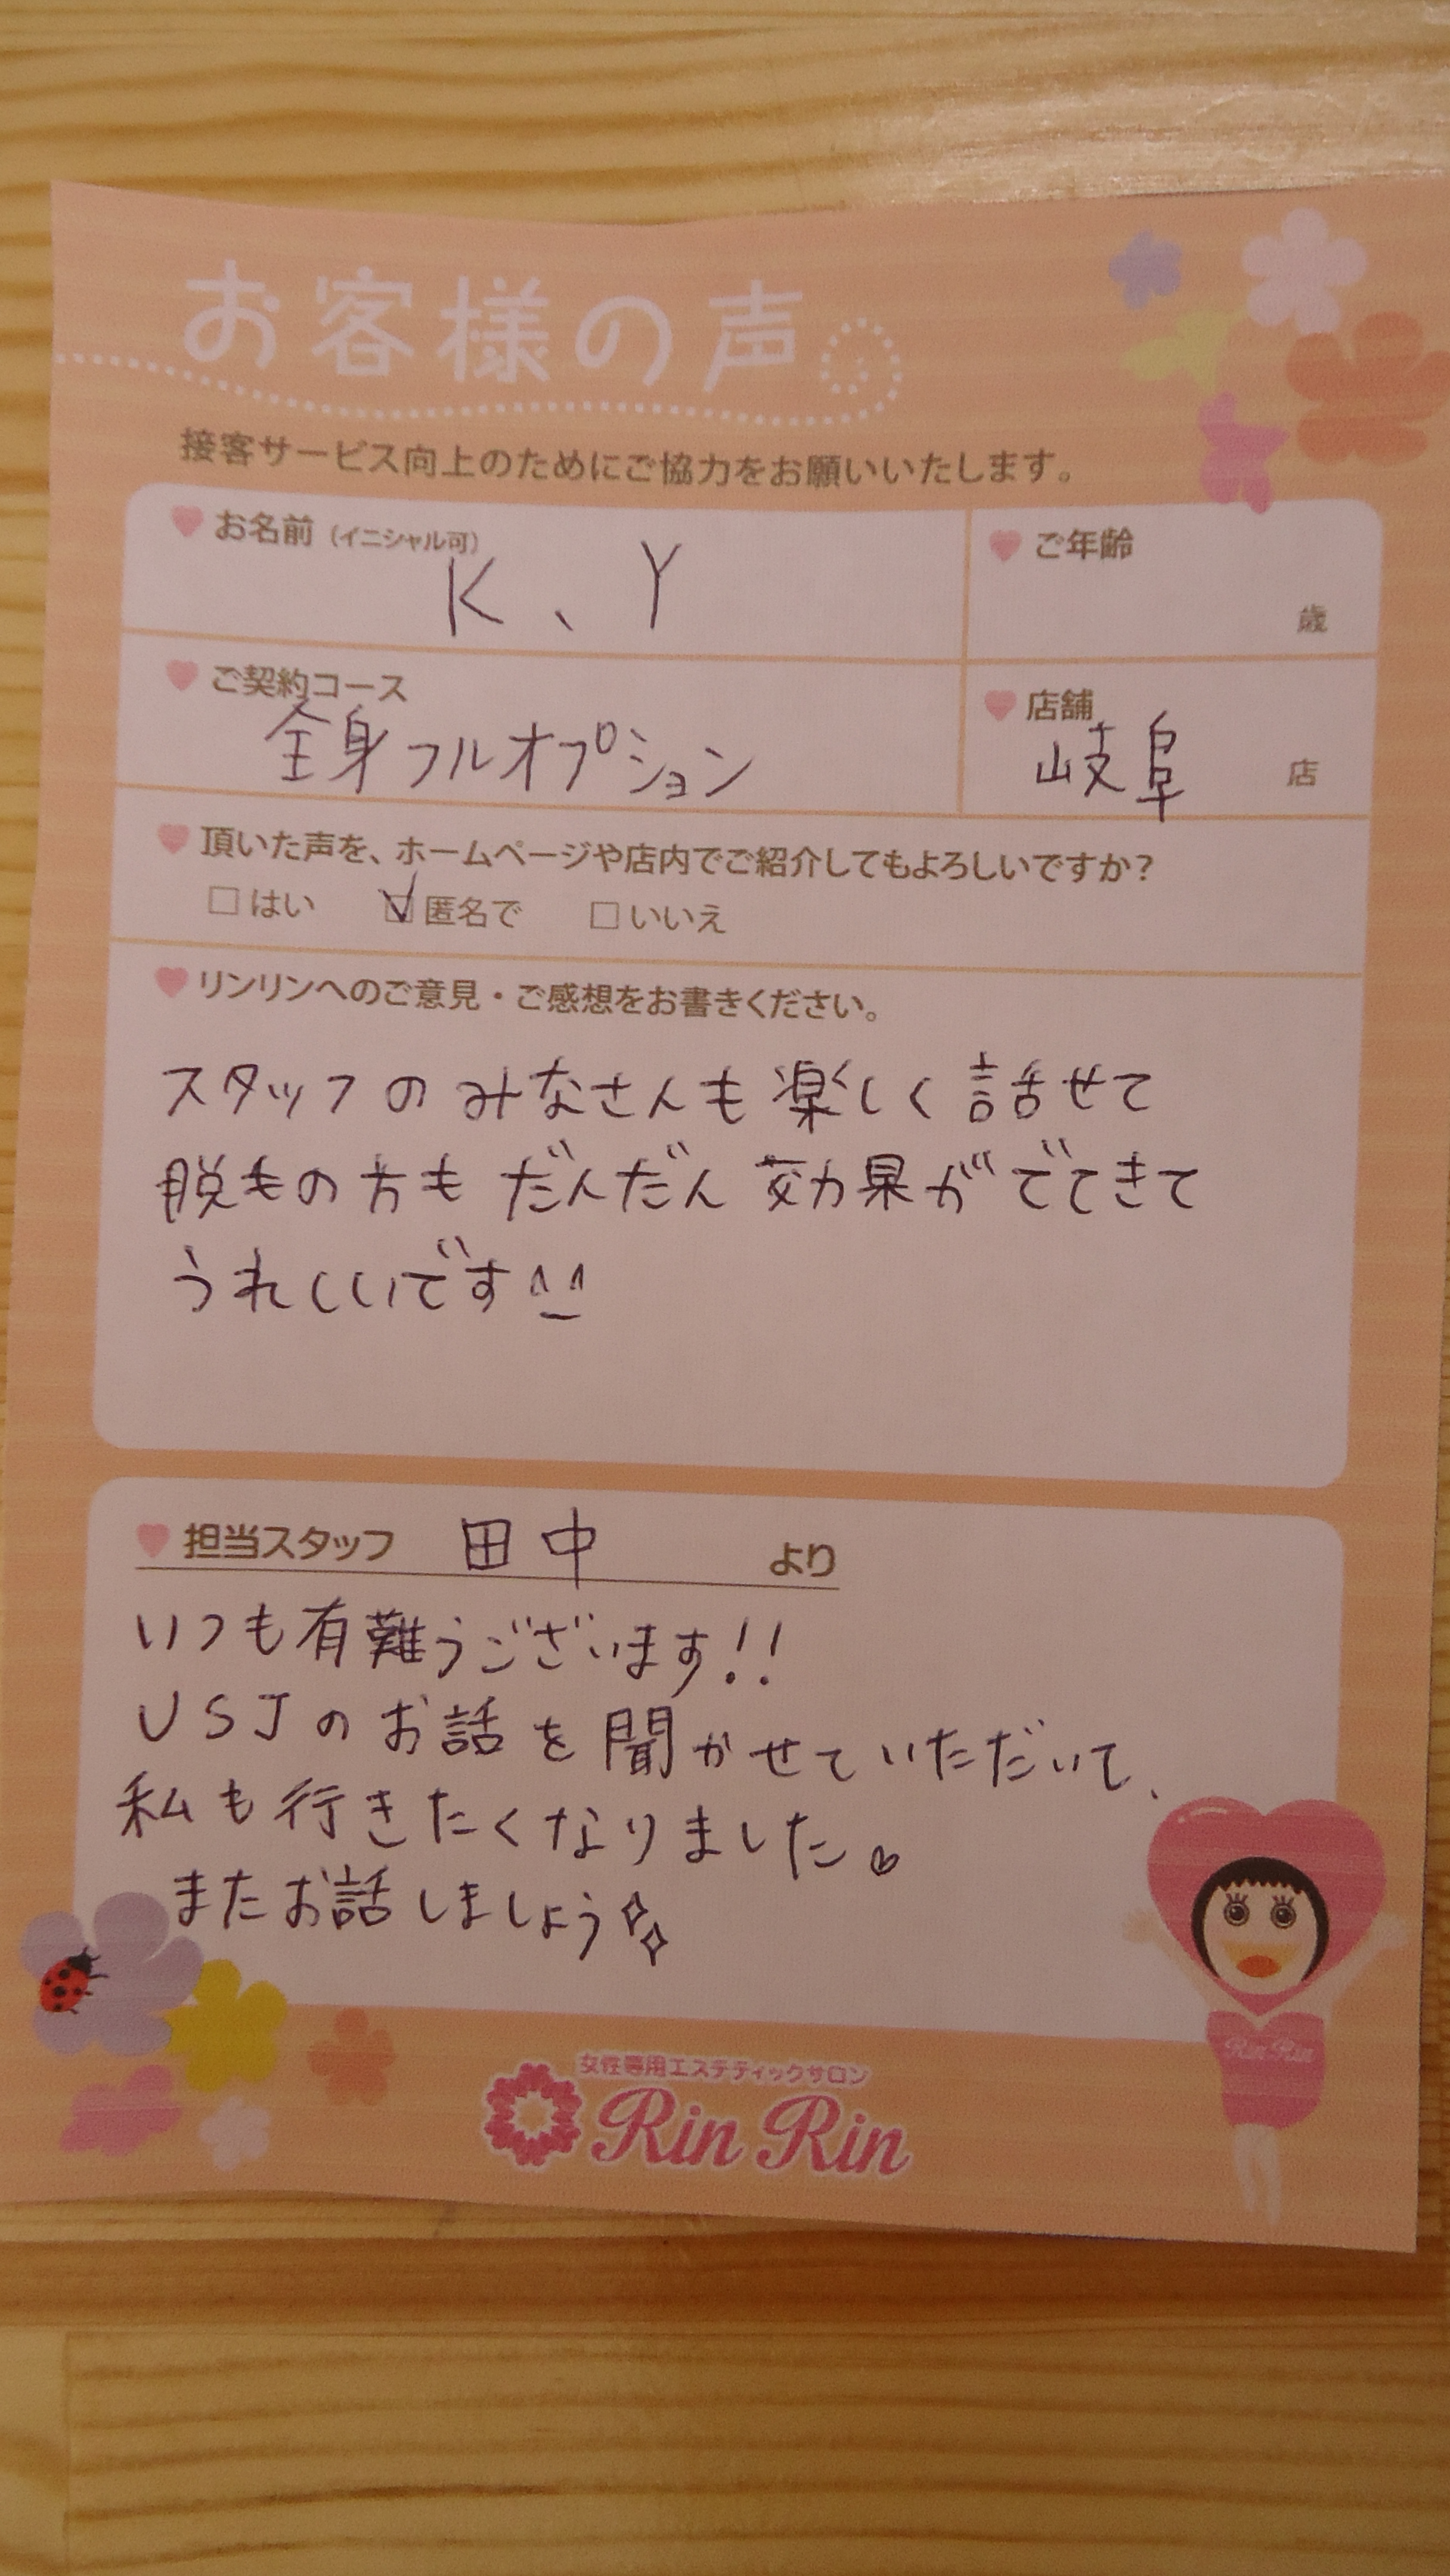 お客様の声
接客サービス向上のためにご協力をお願いいたします。
お名前（イニシャル可）
K、Y
ご年齢
歳
ご契約コース
全身フルオプション
店舗
岐阜 店
頂いた声を、ホームページや店内でご紹介してもよろしいですか？
□はい ☑匿名で □いいえ
リンリンへのご意見・ご感想をお書きください。
スタッフのみなさんも楽しく話せて
脱毛の方もだんだん効果がでてきて
うれしいです^^
担当スタッフ 田中 より
いつも有難うございます!!
USJのお話を聞かせていただいて、
私も行きたくなりました♡
またお話しましょう✧✧
Rin Rin
女性専用エステティックサロン
Rin Rin